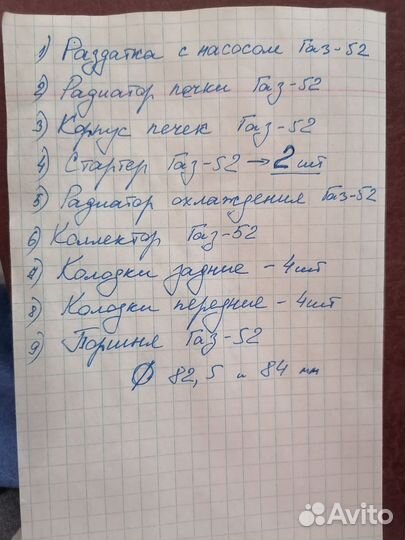 1) Раздатка с насосом Газ-52
2) Радиатор печки Газ-52
3) Корпус печек Газ-52
4) Стартер Газ-52 → 2 шт
5) Радиатор охлаждения Газ-52
6) Коллектор Газ-52
7) Колодки задние - 4шт
8) Колодки передние - 4шт
9) Поршня Газ-52
Ø 82,5 и 84 мм
Avito